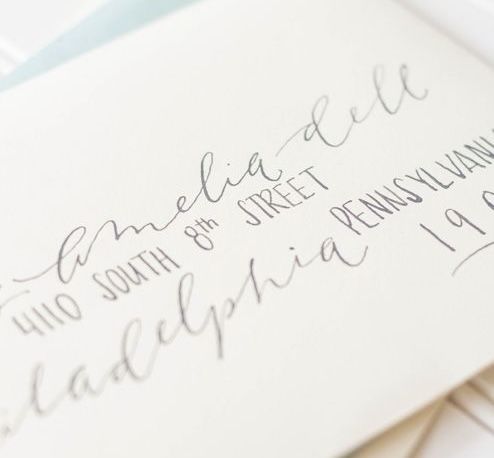 amelia dell
4110 SOUTH 8th STREET
philadelphia PENNSYLVANIA